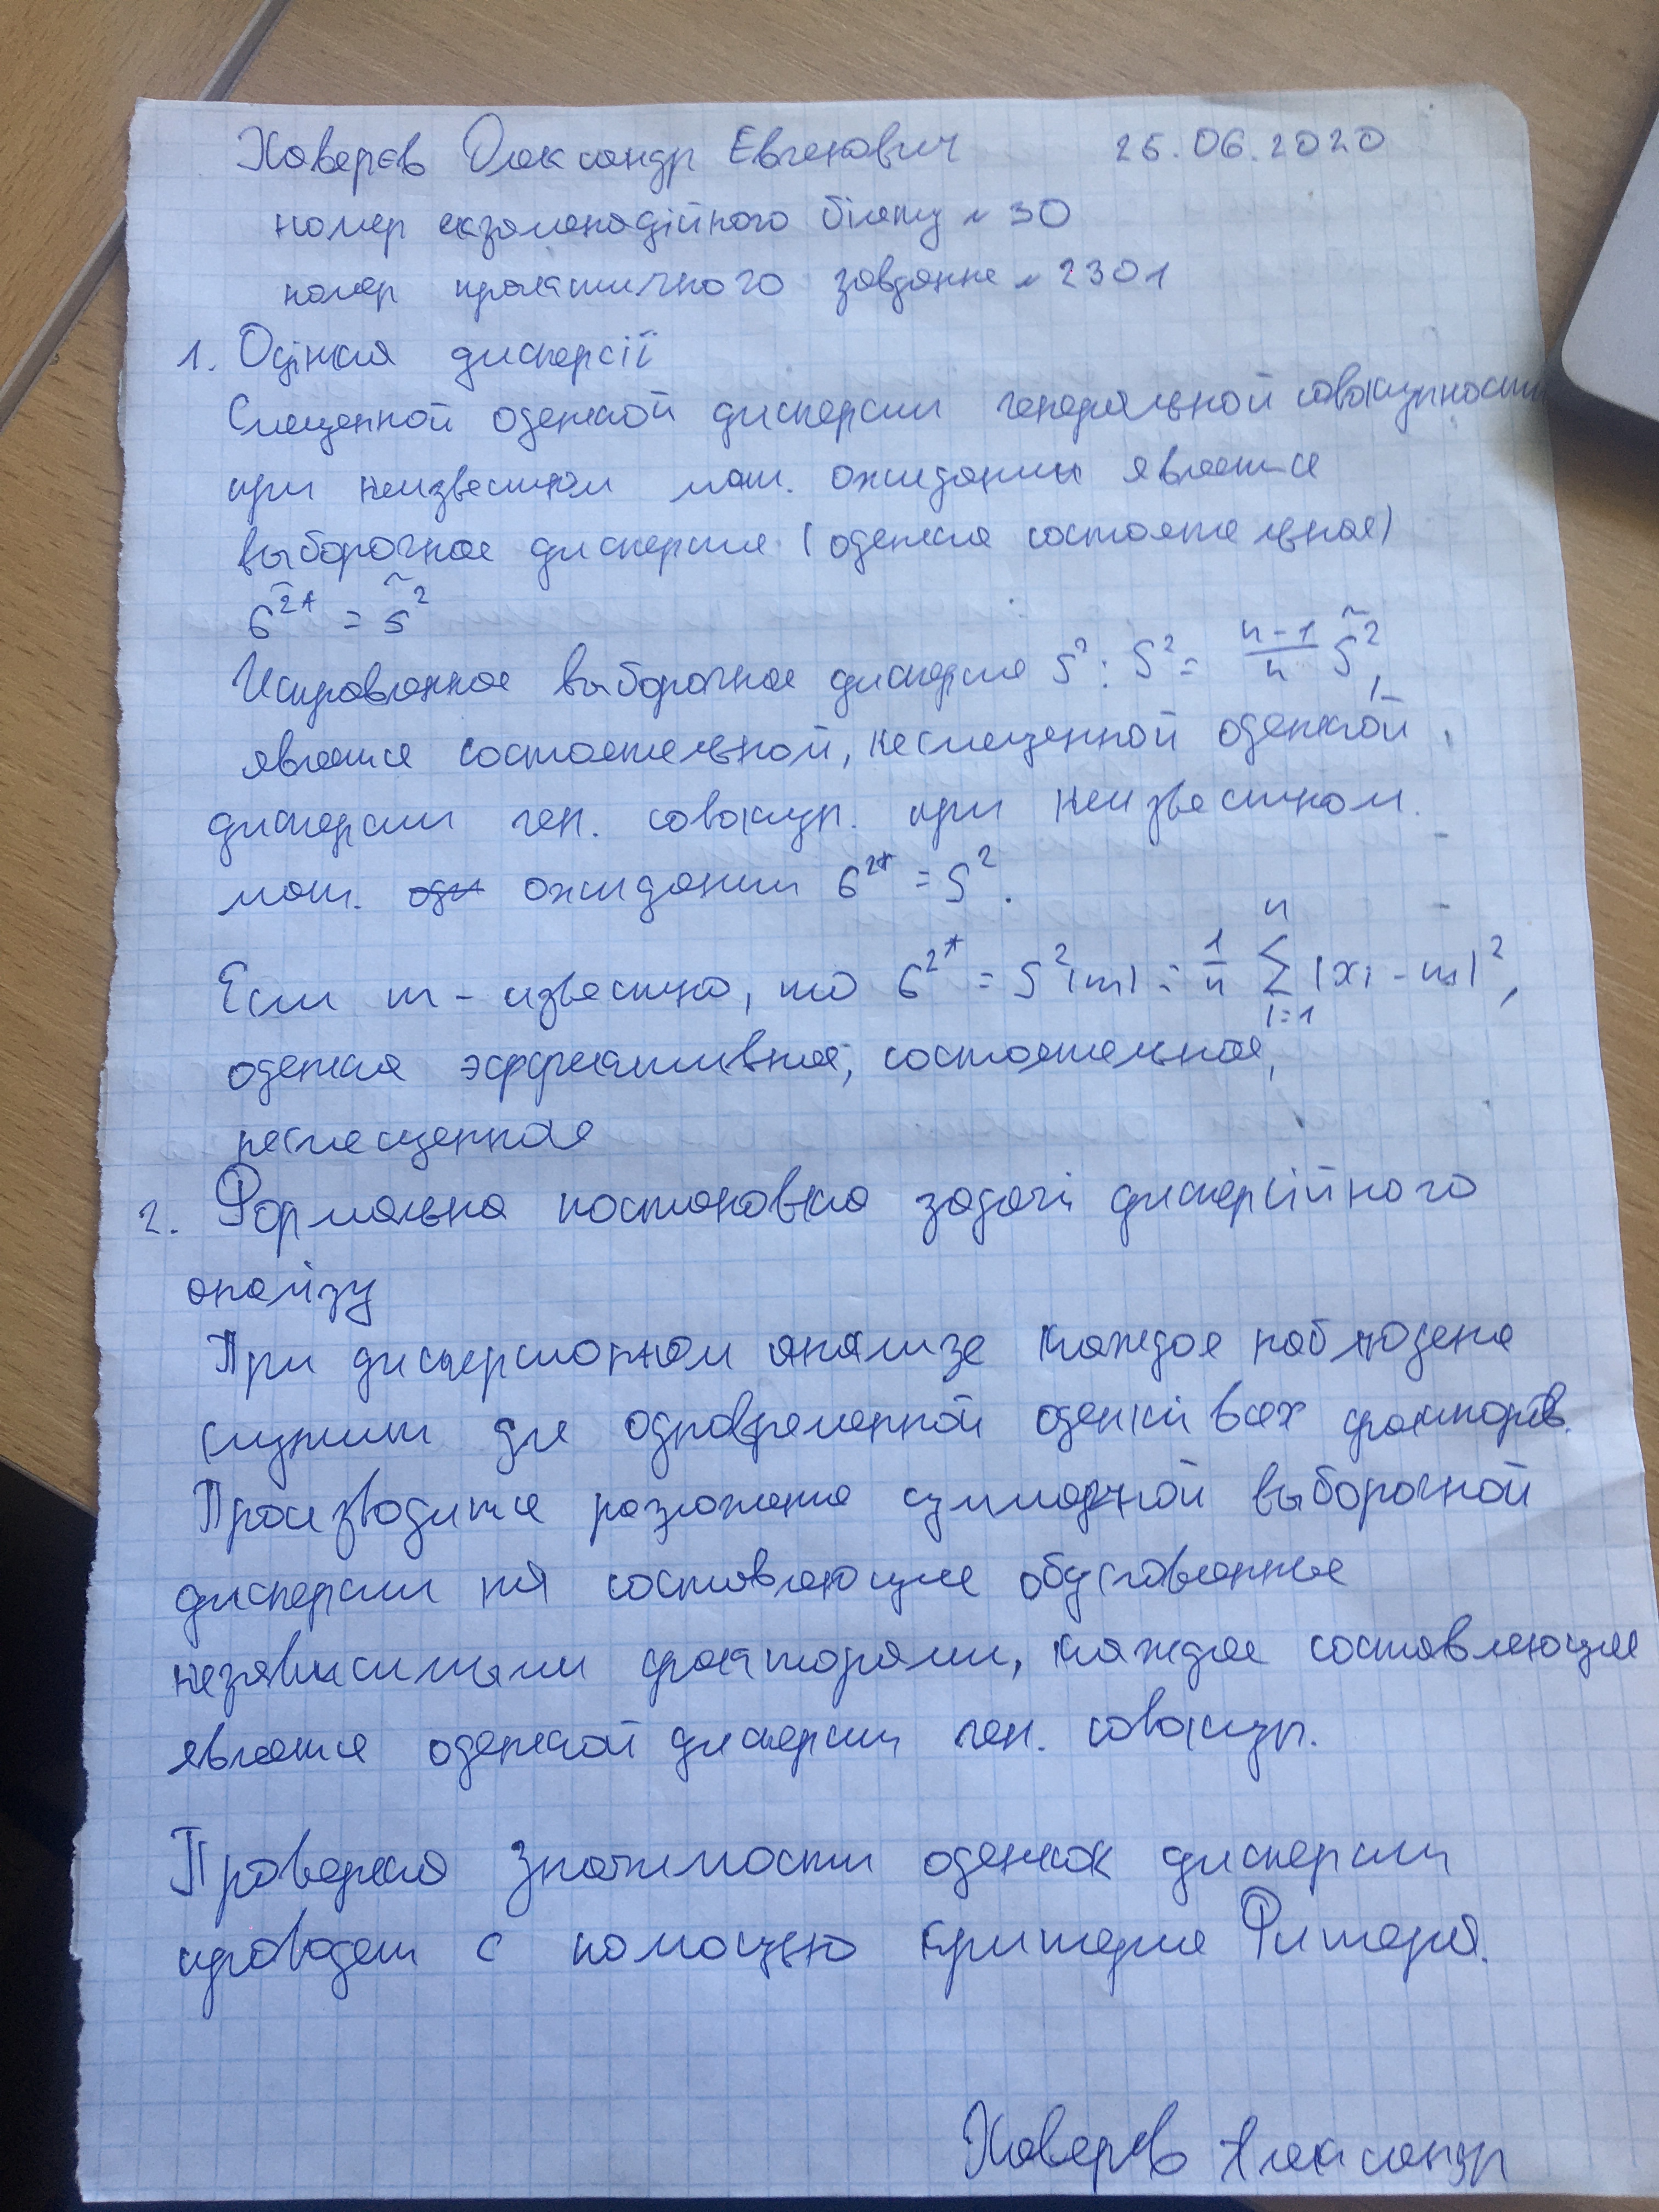 Хаверєв Олександр Евгенович 25.06.2020
номер екзаменаційного білету № 30
номер практичного завдання № 2301
1. Оцінка дисперсії
Смещенной оценкой дисперсии генеральной совокупности
при неизвестном мат. ожидании является
выборочная дисперсия (оценка состоятельная)
б²* = s̃²
Исправленная выборочная дисперсия S²: S² = n-1/n S̃²,
является состоятельной, несмещенной оценкой
дисперсии ген. совокуп. при неизвестном
мат. ожидании б²* = S².
Если m - известно, то б²* = S²(m) = 1/n Σ i=1 n (xi - m)²,
оценка эффективная, состоятельная,
несмещенная
2. Формальна постановка задачі дисперсійного
аналізу
При дисперсионном анализе каждое наблюдение
служит для одновременной оценки всех факторов.
Производится разложение суммарной выборочной
дисперсии на составляющие обусловленные
независимыми факторами, каждая составляющая
является оценкой дисперсии ген. совокуп.
Проверка значимости оценок дисперсии
проводят с помощью критерия Фишера.
Хаверєв Александр